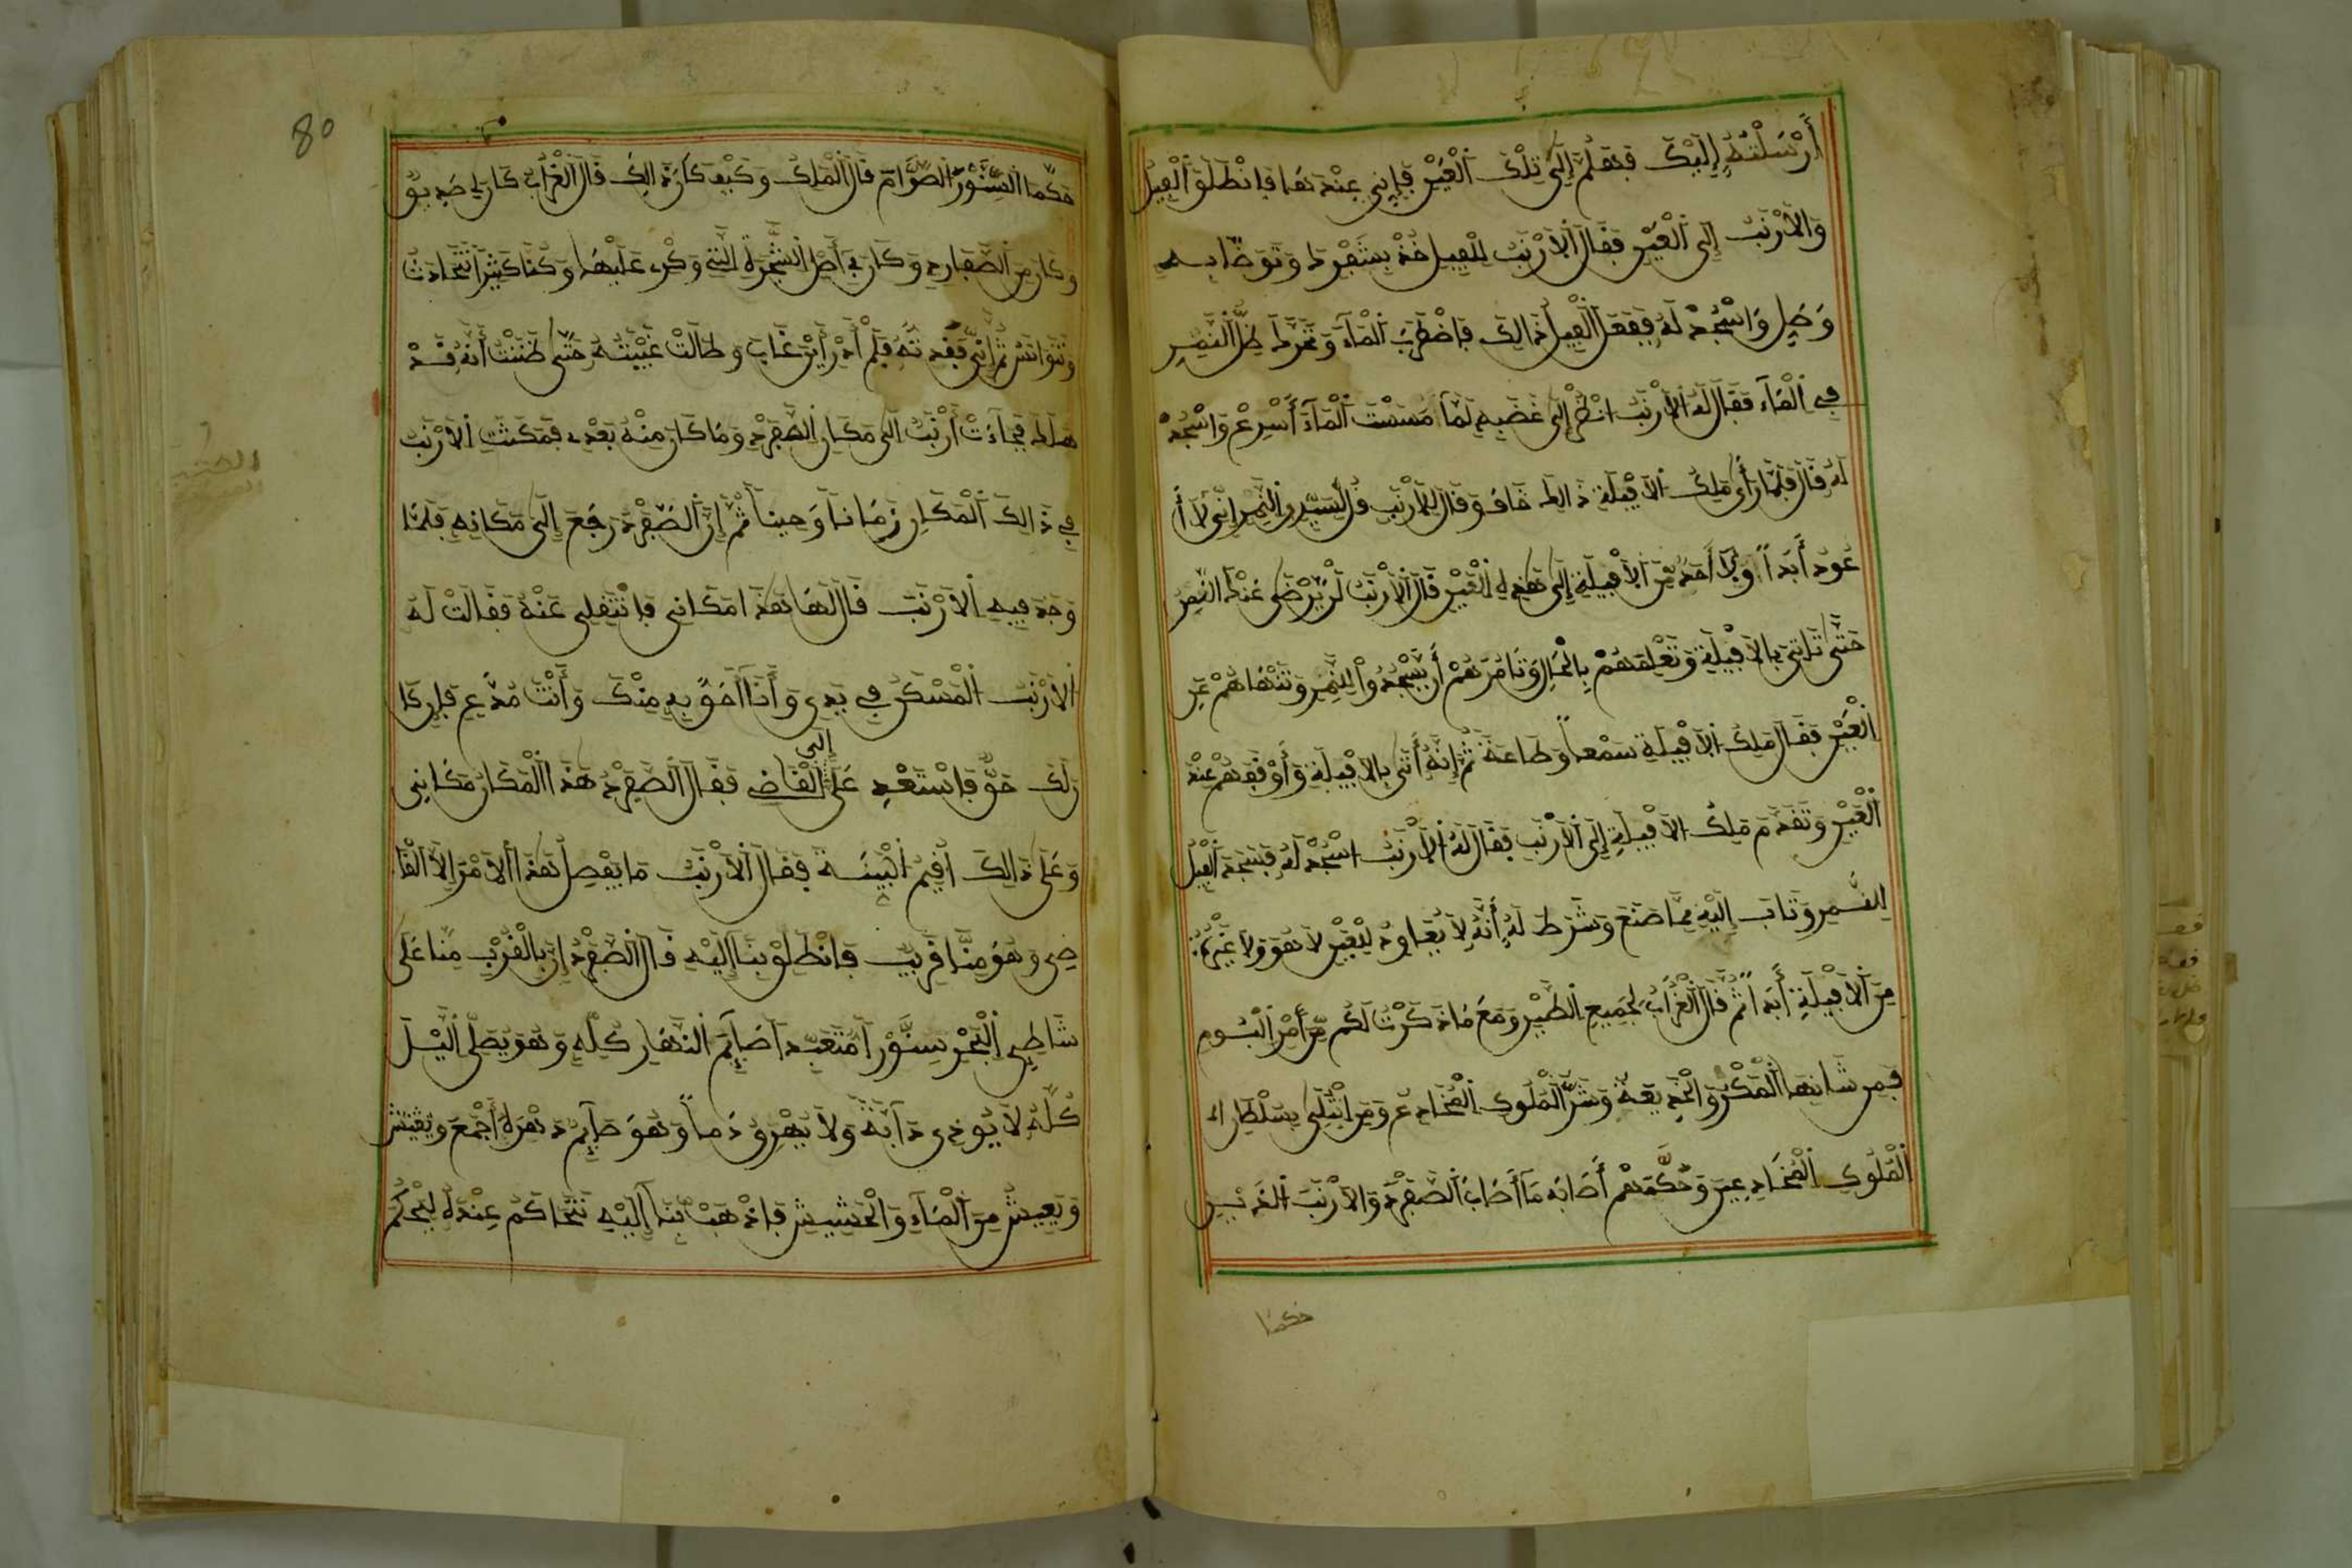 أَرْسَلْتُهُ إِلَيْكَ فَهَلُمَّ إِلَى تِلْكَ الْعَيْنِ فَإِنِّي عِنْدَهَا فَانْطَلَقَ الْفِيلُ
وَالأَرْنَبُ إِلَى الْعَيْنِ فَقَالَ الأَرْنَبُ لِلْفِيلِ خُذْ بِشَفْرِكَ وَتَوَضَّأ بِهِ
وَصَلِّ وَاسْجُدْ لَهُ فَفَعَلَ الْفِيلُ ذَالِكَ فَاضْطَرَبَ الْمَآءُ وَتَحَرَّكَ ظِلُّ الْقَمَرِ
فِي الْمَآءِ فَقَالَ لَهُ الأَرْنَبُ انْظُرْ إِلَى غَضَبِهِ لَمَّا مَسَسْتَ الْمَآءَ أَسْرِعْ وَاسْجُدْ
لَهُ قَالَ فَلَمَّا رَأَى مَلِكُ الأَفْيِلَةِ ذَالِكَ خَافَ وَقَالَ لِلأَرْنَبِ قُلْ لِسَيِّدِي الْقَمَرِ إِنِّي لاَ أَ
عُودُ أَبَداً وَلاَ أَحَدٌ مِنَ الأَفْيِلَةِ إِلَى هَذِهِ الْعَيْنِ قَالَ الأَرْنَبُ لَنْ يَرْضَى عَنْكَ الْقَمَرُ
حَتَّى تَاتِيَ بِالأَفْيِلَةِ وَتُعْلِمَهُمْ بِالْحَالِ وَتَامُرَهُمْ أَنْ يَسْجُدُواْ لِلْقَمَرِ وَتَنْهَاهُمْ عَنِ
الْعَيْنِ فَقَالَ مَلِكُ الأَفْيِلَةِ سَمْعاً وَطَاعَةً ثُمَّ إِنَّهُ أَتَى بِالأَفْيِلَةِ وَأَوْقَفَهُمْ عِنْدَ
الْعَيْنِ وَتَقَدَّمَ مَلِكُ الأَفْيِلَةِ إِلَى الأَرْنَبِ فَقَالَ لَهُ الأَرْنَبُ اسْجُدْ لَهُ فَسَجَدَ الْفِيلُ
لِلْقَمَرِ وَتَابَ إِلَيْهِ مِمَّا صَنَعَ وَشَرَطَ لَهُ أَنَّهُ لاَ يُعَاوِدُ لِلْعَيْنِ لاَ هُوَ وَلاَ غَيْرُهُ
مِنَ الأَفْيِلَةِ أَبَداً ثُمَّ قَالَ الْغُرَابُ لِجَمِيعِ الطَّيْرِ وَمَعَ مَا ذَكَرْتُ لَكُمْ مِنْ أَمْرِ الْبُومِ
فَمِنْ شَانِهَا الْمَكْرُ وَالْخَدِيعَةُ وَشَرُّ الْمُلُوكِ الْمُخَادِعُ وَمَنِ ابْتُلِيَ بِسُلْطَانِ
الْمُلُوكِ الْمُخَادِعِينَ وَحُكْمِهِمْ أَصَابَهُ مَا أَصَابَ الصَّفِرْدَ وَالأَرْنَبَ الذَيْنِ
حكما
80
حَكَّمَا السِّنَّوْرَ الصَّوَّامَ قَالَ الْمَلِكُ وَكَيْفَ كَانَ ذَالِكَ قَالَ الْغُرَابُ كَانَ لِي صَدِيقٌ
وَكَانَ مِنَ الصَّفَارِدِ وَكَانَ فِي أَصْلِ الشَّجَرَةِ الَّتِي وَكْرِي عَلَيْهَا وَكُنَّا كَثِيراً نَتَحَادَثُ
وَنَتَوَانَسُ ثُمَّ إِنِّي فَقَدْتُهُ فَلَمْ أَدْرِ أَيْنَ غَابَ وَطَالَتْ غَيْبَتُهُ حَتَّى ظَنَنْتُ أَنَّهُ قَدْ
هَلَكَ فَجَاءَتْ أَرْنَبٌ إِلَى مَكَانِ الصَّفِرْدِ وَمَا كَانَ مِنْهُ بَعْدِي فَمَكَثَتِ الأَرْنَبُ
فِي ذَالِكَ الْمَكَانِ زَمَاناً وَحِيناً ثُمَّ إِنَّ الصَّفِرْدَ رَجَعَ إِلَى مَكَانِهِ فَلَمَّا
وَجَدَ فِيهِ الأَرْنَبَ قَالَ لَهَا هَذَا مَكَانِي فَانْتَقِلِي عَنْهُ فَقَالَتْ لَهُ
الأَرْنَبُ الْمَسْكَنُ فِي يَدِي وَأَنَا أَحَقُّ بِهِ مِنْكَ وَأَنْتَ مُدَّعٍ فَإِن كَا
نَ لَكَ حَقٌّ فَاسْتَعْدِ عَلَيَّ إِلَى الْقَاضِي فَقَالَ الصَّفِرْدُ هَذَا الْمَكَانُ مَكَانِي
وَعَلَى ذَالِكَ أُقِيمُ الْبَيِّنَةَ فَقَالَ الأَرْنَبُ مَا يَفْصِلُ هَذَا الأَمْرَ إِلاَّ الْقَا
ضِي وَهُوَ مِنَّا قَرِيبٌ فَانْطَلِقْ بِنَا إِلَيْهِ قَالَ الصَّفِرْدُ إِنَّ بِالْقُرْبِ مِنَّا عَلَى
شَاطِي الْبَحْرِ سِنَّوْراً مُتَعَبِّداً صَايِمَ النَّهَارِ كُلِّهِ وَهُوَ يُصَلِّي اللَّيْلَ
كُلَّهُ لاَ يُوذِي دَآبَّةً وَلاَ يُهْرِقُ دَماً وَهُوَ صَايِمٌ دَهْرَهُ أَجْمَعَ
وَيَعِيشُ مِنَ الْمَآءِ وَالْحَشِيشِ فَاذْهَبْ بِنَا إِلَيْهِ نَتَحَاكَمُ عِنْدَهُ لِيَحْكُمَ